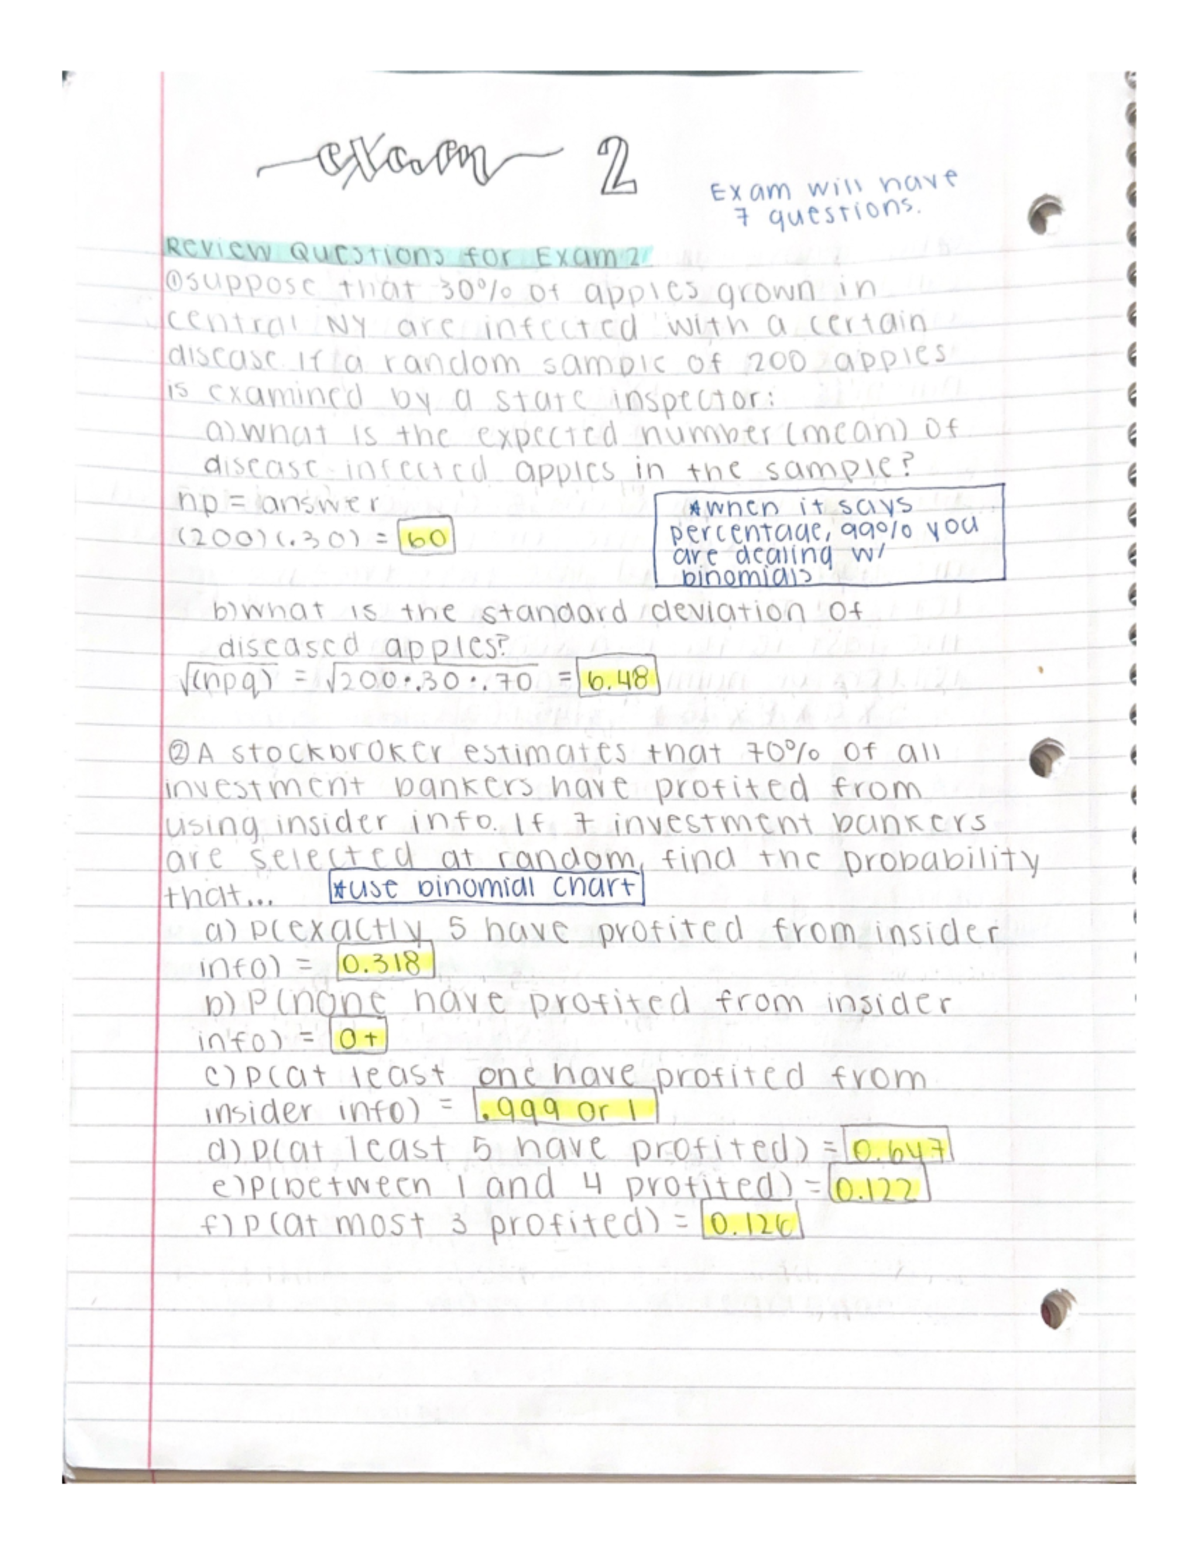 exam 2
Exam will have
7 questions.
Review Questions for Exam 2
①suppose that 30% of apples grown in
central NY are infected with a certain
disease. If a random sample of 200 apples
is examined by a state inspector:
a) what is the expected number (mean) of
disease-infected apples in the sample?
np = answer
(200)(.30) = 60
*when it says
percentage, 99% you
are dealing w/
binomials
b) what is the standard deviation of
diseased apples?
√(npq) = √200·.30·.70 = 6.48
②A stockbroker estimates that 70% of all
investment bankers have profited from
using insider info. If 7 investment bankers
are selected at random, find the probability
that...
*use binomial chart
a) P(exactly 5 have profited from insider
info) = 0.318
b) P(none have profited from insider
info) = 0+
c) P(at least one have profited from
insider info) = .999 or 1
d) P(at least 5 have profited) = 0.647
e) P(between 1 and 4 profited) = 0.122
f) P(at most 3 profited) = 0.126